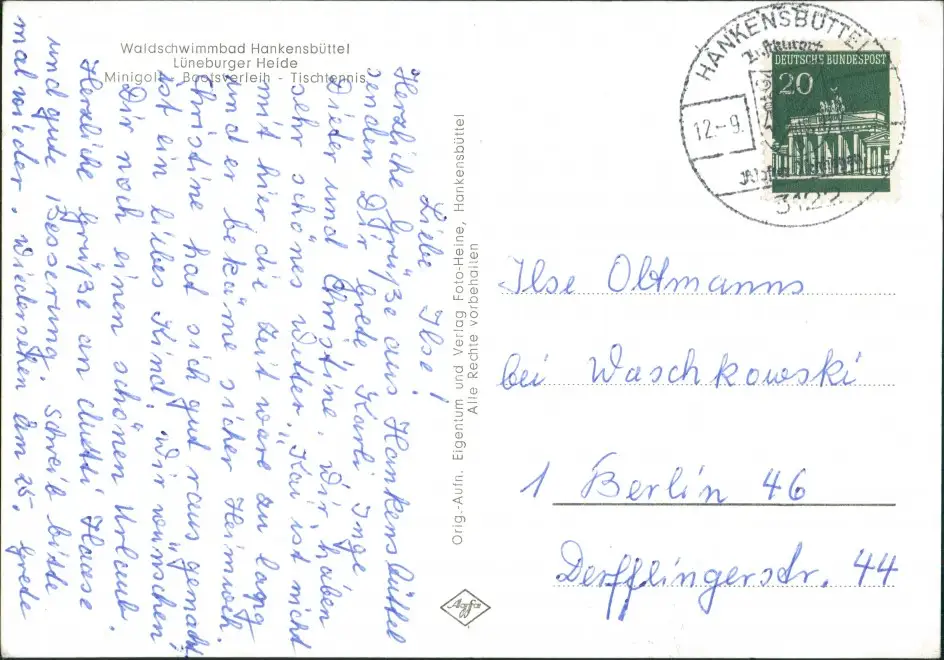 Waldschwimmbad Hankensbüttel
Lüneburger Heide
Minigolf - Bootsverleih - Tischtennis
Liebe Ilse!
Herzliche Grüße aus Hankensbüttel
senden Dir Grete, Karli, Inge
Dieter und Christine. Wir haben
sehr schönes Wetter. Kai ist nicht
mit hier die Zeit wäre zu lang
und er bekäme sicher Heimweh.
Christine hat sich gut raus gemacht
ist ein liebes Kind. Wir wünschen
Dir noch einen schönen Urlaub.
Herzliche Grüße an Mutti Haase
und gute Besserung. Schreib bitte
mal wieder. Wiedersehen am 25. Grete
Orig.-Aufn. Eigentum und Verlag Foto-Heine, Hankensbüttel
Alle Rechte vorbehalten
Agfa
HANKENSBÜTTEL
Luftkurort
12.-9.
3122
DEUTSCHE BUNDESPOST
20
Ilse Oltmanns
bei Waschkowski
1 Berlin 46
Derfflingerstr. 44